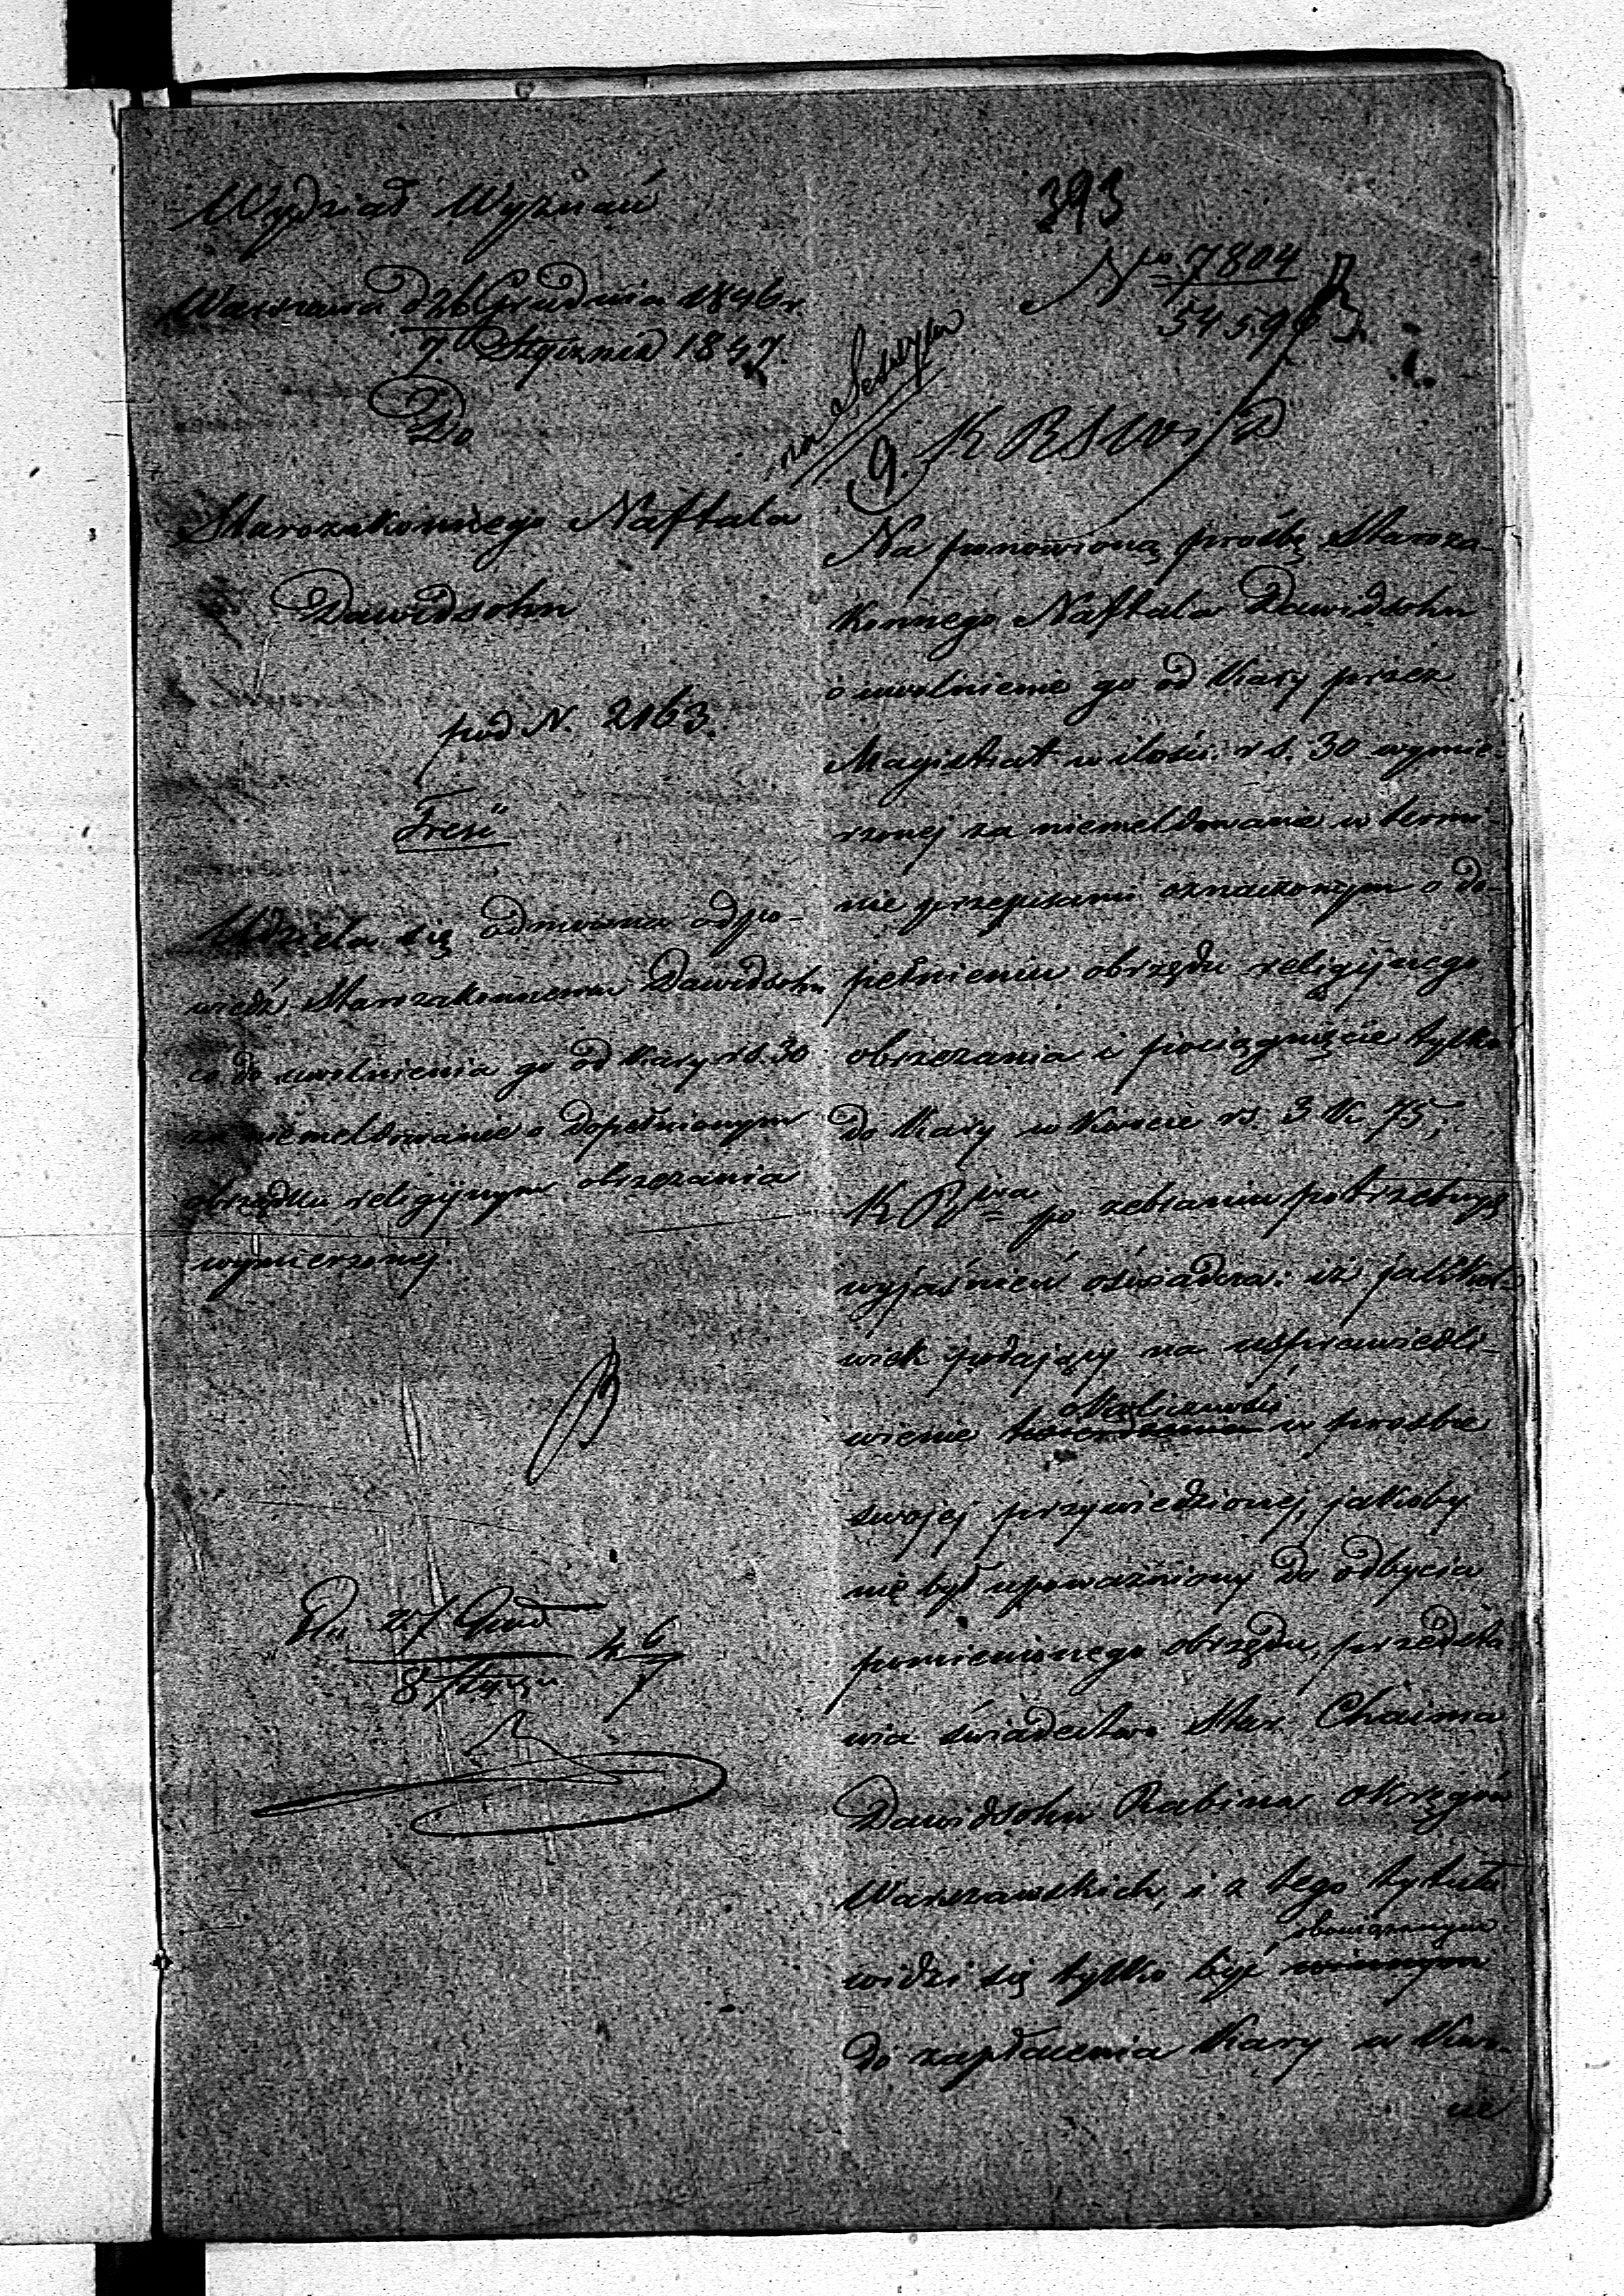 Wydział Wyznań
Warszawa d 26 Grudnia 1846 r.
7. Stycznia 1847.
Do
Starozakonnego Naftala
Dawidsohn
pod N. 2163.
Treść
Udziela się odmowna odpo-
wiedź Starozakonnemu Dawidsohn
co do uwolnienia go od kary rs. 30
za niemeldowanie o dopełnionym
obrządku religijnym obrzezania
wymierzonej.
Dn 27 Grud 46
8 Stycz 7
393
No 7804
54596
na Sessyą
9. K R S W i D
Na ponowioną prośbę Staroza-
konnego Naftala Dawidsohn
o uwolnienie go od kary przez
Magistrat w ilości rs. 30 wymie-
rzonej za niemeldowanie w termi-
nie przepisami oznaczonym o do-
pełnieniu obrzędu religijnego
obrzezania i pociągnięcie tylko
do kary w kwocie rs. 3 k. 75;
K R po zebraniu potrzebnych
wyjaśnień oświadcza: iż jakkol-
wiek podający na usprawiedli-
wienie okoliczności w prośbie
swojej przywiedzionej, jakoby
nie był upoważniony do odbycia
pomienionego obrzędu, przedsta
wia świadectwo Star. Chaima
Dawidsohn Rabina Okręgów
Warszawskich, i z tego tytułu
obowiązanym
widzi się tylko być winnym
do zapłacenia kary w kwo-
cie